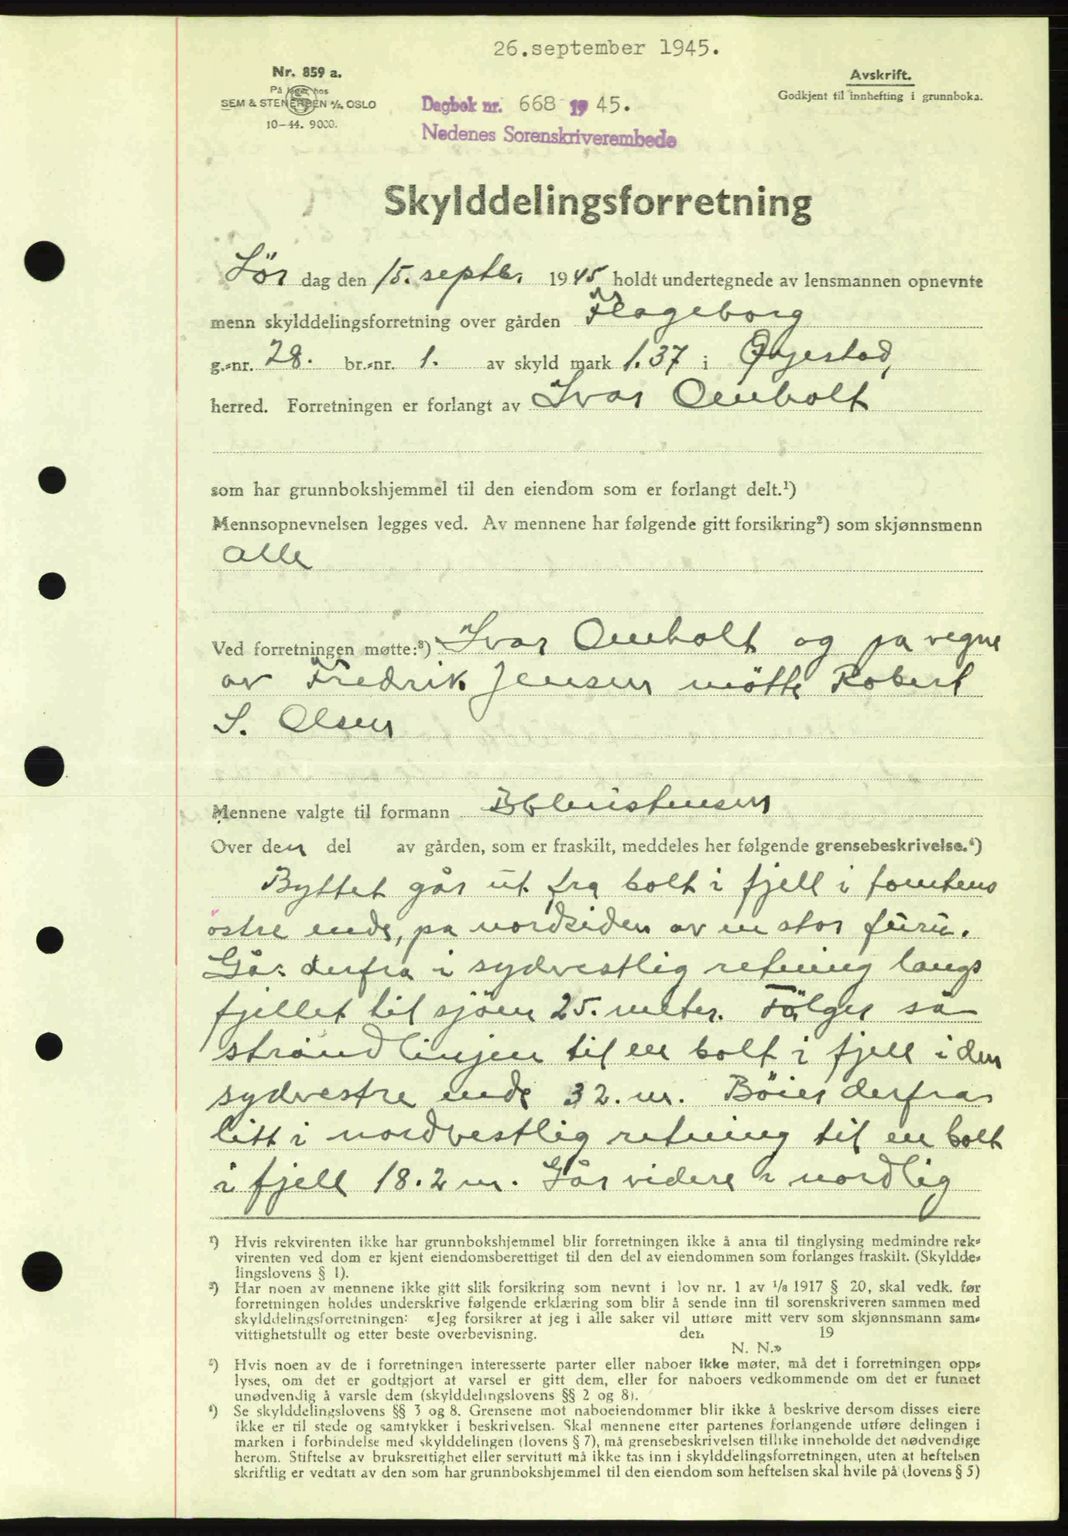 26.september 1945.
Nr. 859 a.
På lager hos
SEM & STENERSEN A/S OSLO
10-44. 9000.
Avskrift.
Godkjent til innhefting i grunnboka.
Dagbok nr. 668 1945.
Nedenes Sorenskriverembede
Skylddelingsforretning
Lør dag den 15. septbr. 1945 holdt undertegnede av lensmannen opnevnte
menn skylddelingsforretning over gården Flageborg
g.-nr. 28. br.-nr. 1. av skyld mark 1.37 i Øyestad,
herred. Forretningen er forlangt av Ivar Omholt
som har grunnbokshjemmel til den eiendom som er forlangt delt.¹)
Mennsopnevnelsen legges ved. Av mennene har følgende gitt forsikring²) som skjønnsmenn
alle
Ved forretningen møtte:³) Ivar Omholt og på vegne
av Fredrik Jensen mötte Robert
S. Olsen
Mennene valgte til formann B Christensen
Over den del av gården, som er fraskilt, meddeles her følgende grensebeskrivelse.⁴)
Byttet går ut fra bolt i fjell i tomtens
östre ende, på nordsiden av en stor furu.
Går derfra i sydvestlig retning langs
fjellet til sjöen 25. meter. Fölger så
strandlinjen til en bolt i fjell i den
sydvestre ende 32. m. Böier derfra
litt i nordvestlig retning til en bolt
i fjell 18.2 m. Går videre i nordlig
¹) Hvis rekvirenten ikke har grunnbokshjemmel blir forretningen ikke å anta til tinglysing medmindre rek-
virenten ved dom er kjent eiendomsberettiget til den del av eiendommen som forlanges fraskilt. (Skyldde-
lingslovens § 1).
²) Har noen av mennene ikke gitt slik forsikring som nevnt i lov nr. 1 av 1/6 1917 § 20, skal vedk. før
forretningen holdes underskrive følgende erklæring som blir å sende inn til sorenskriveren sammen med
skylddelingsforretningen: «Jeg forsikrer at jeg i alle saker vil utføre mitt verv som skjønnsmann sam-
vittighetsfullt og etter beste overbevisning. den 19
N. N.»
³) Hvis noen av de i forretningen interesserte parter eller naboer ikke møter, må det i forretningen opp-
lyses, om det er godtgjort at varsel er gitt dem, eller for naboers vedkommende om det er funnet
unødvendig å varsle dem (skylddelingslovens §§ 2 og 8).
⁴) Se skylddelingslovens §§ 3 og 8. Grensene mot naboeiendommer blir ikke å beskrive dersom disses eiere
ikke er til stede og samtykker i beskrivelsen. Skal mennene etter partenes forlangende utføre delingen i
marken i forbindelse med skylddelingen (lovens § 7), må grensebeskrivelsen tillike inneholde det nødvendige
herom. Stiftelse av bruksrettighet eller servitutt må ikke tas inn i skylddelingsforretningen, uten at heftelsen
skriftlig er vedtatt av den som har grunnbokshjemmel til den eiendom som heftelsen skal hvile på (lovens § 5)